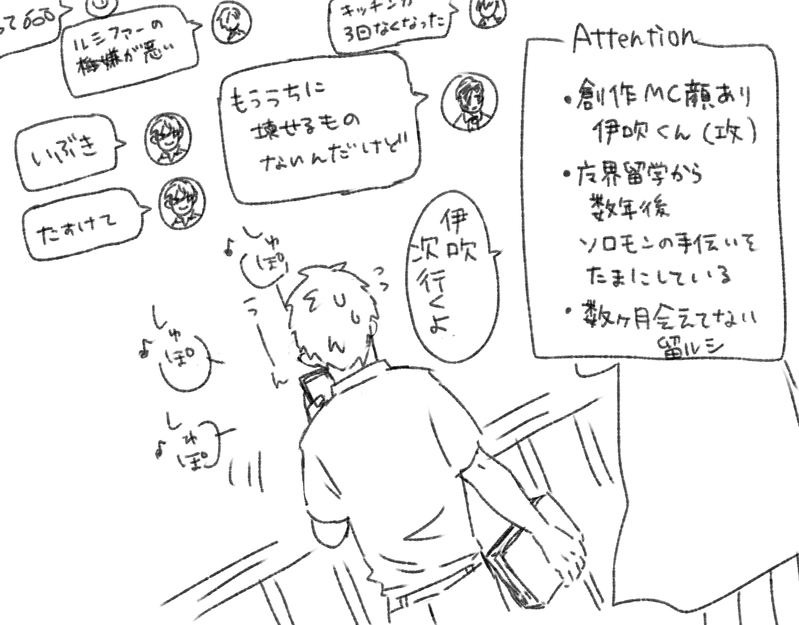 Attention
・創作MC顔あり
伊吹くん(攻)
・魔界留学から
数年後
ソロモンの手伝いを
たまにしている
・数ヶ月会えてない
留ルシ
キッチンが
3回なくなった
ルシファーの
機嫌が悪い
もううちに
壊せるもの
ないんだけど
いぶき
たすけて
伊吹
次行くよ
しゅ
ぽ♪
しゅ
ぽ♪
しゅ
ぽ♪
う〜ん